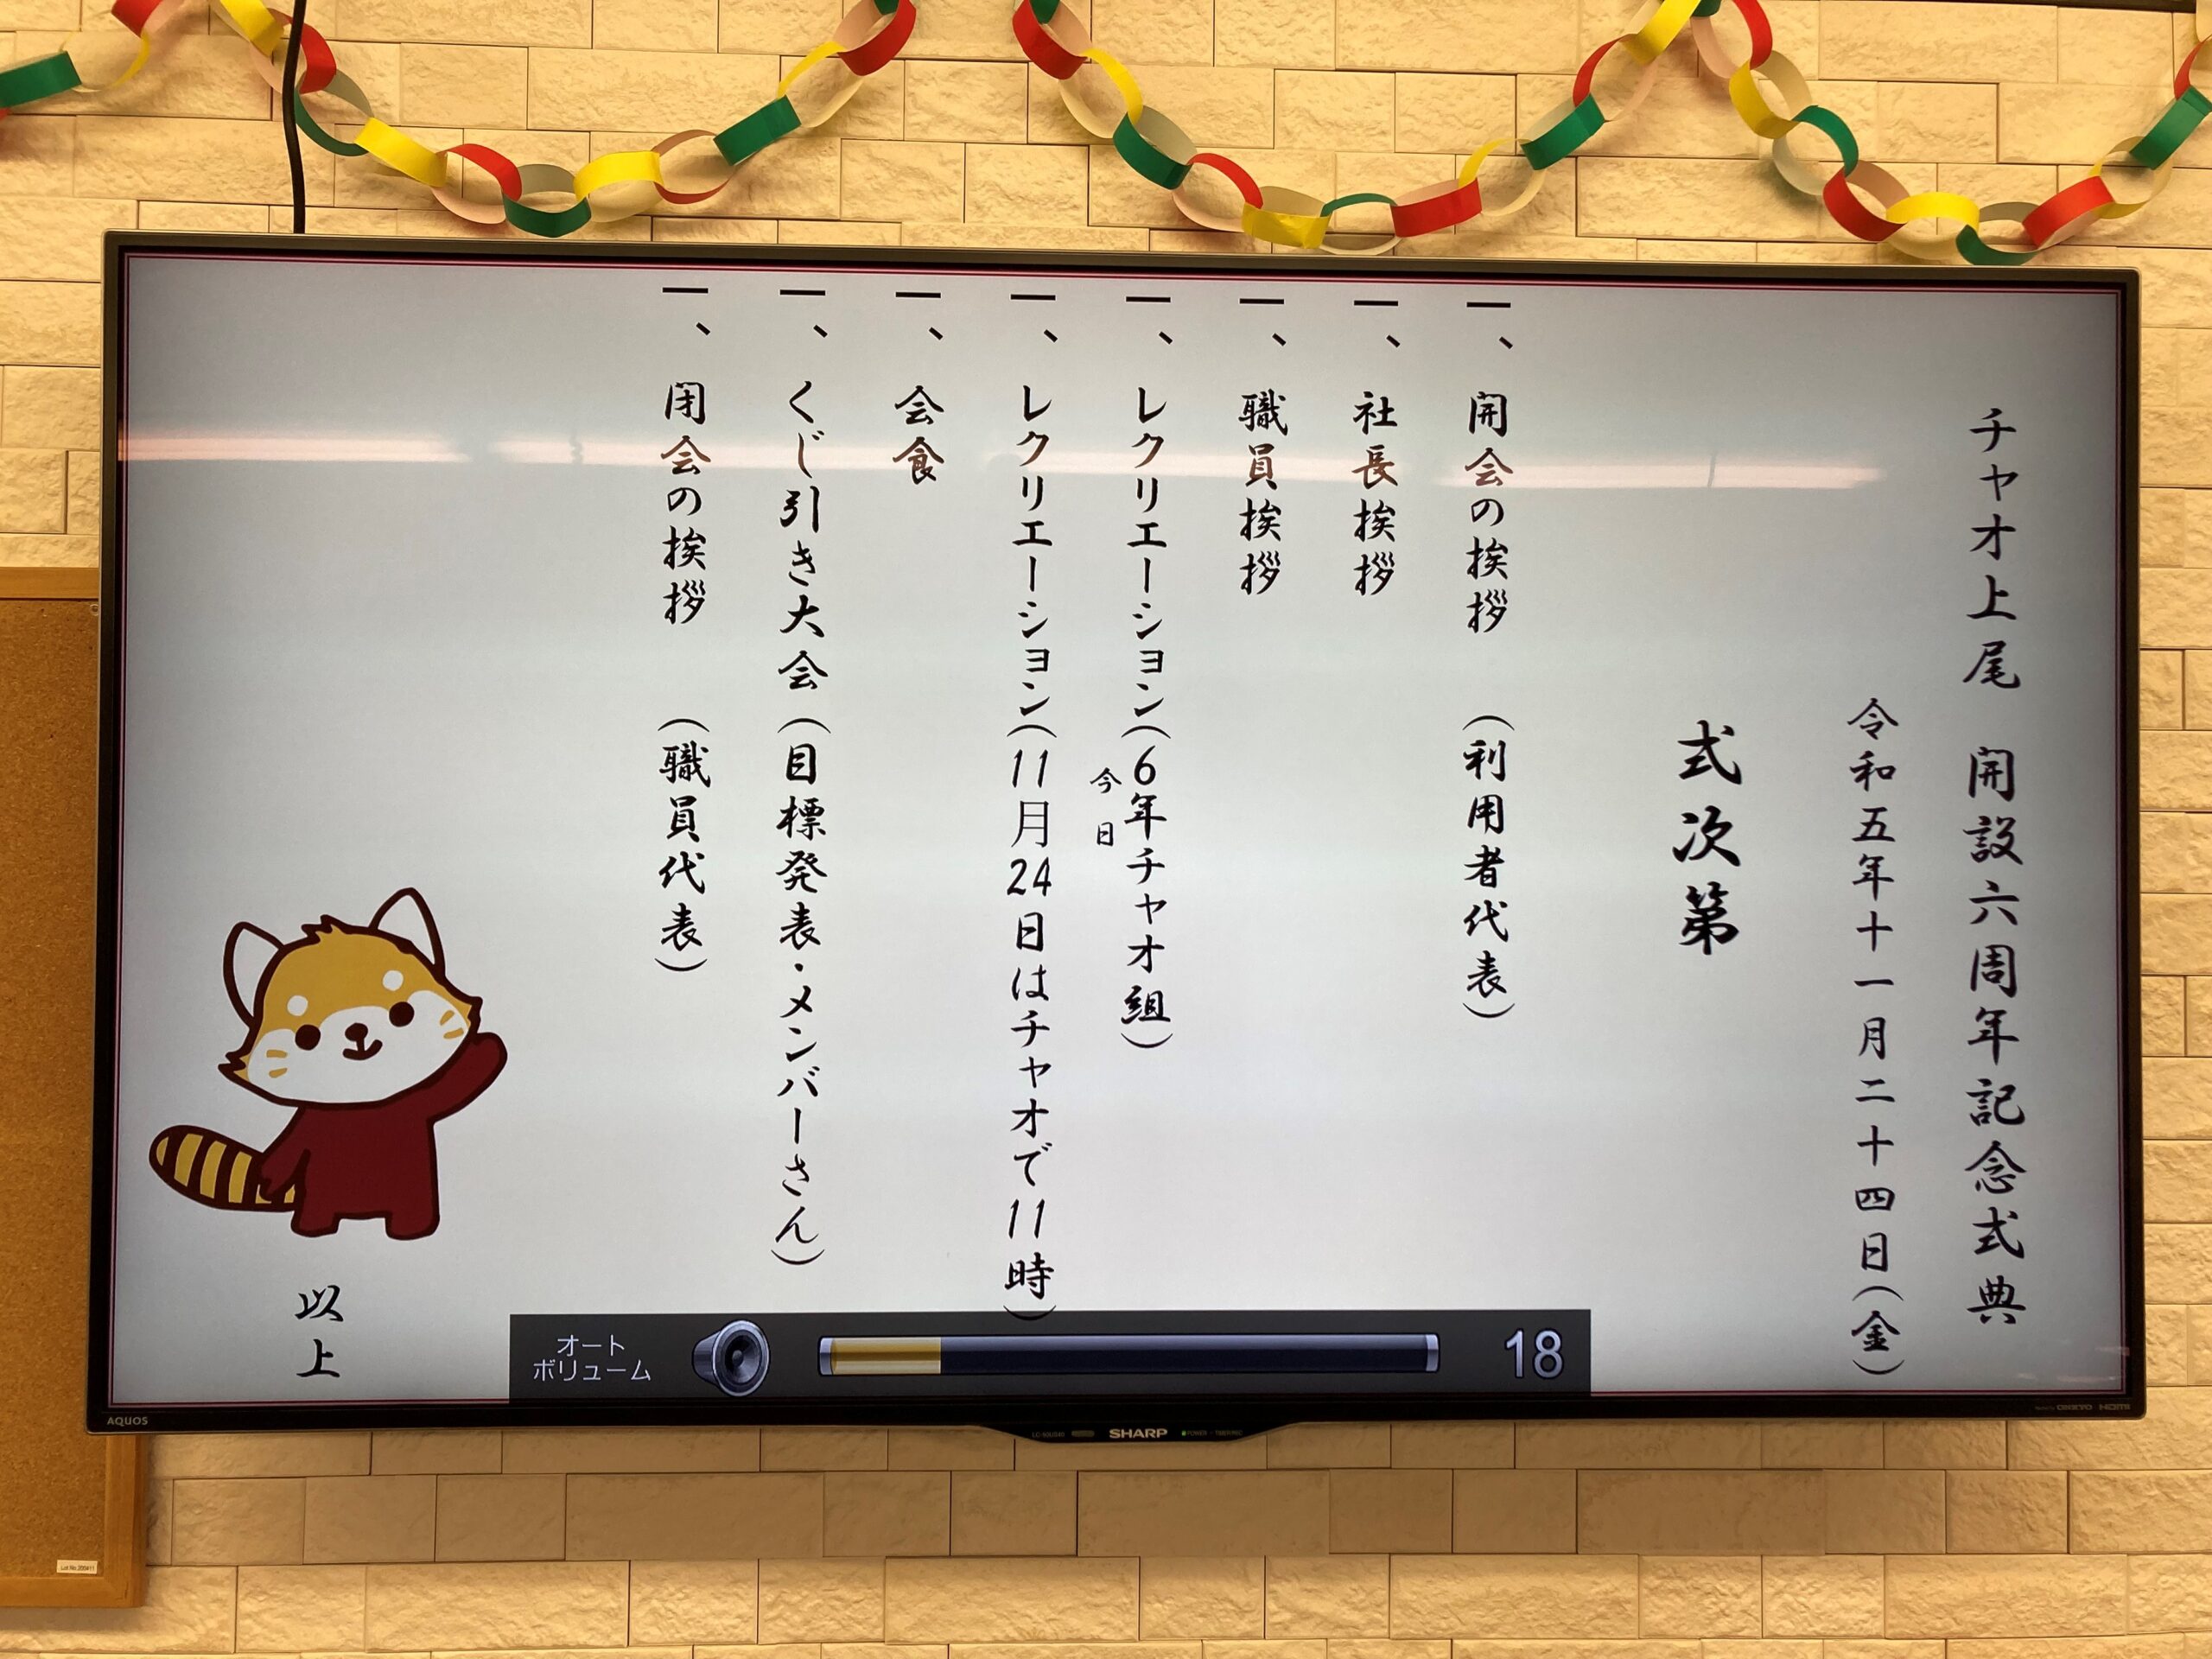 チャオ上尾 開設六周年記念式典
令和五年十一月二十四日(金)
式次第
一、開会の挨拶 (利用者代表)
一、社長挨拶
一、職員挨拶
一、レクリエーション(6年チャオ組)
一、レクリエーション(11月24日はチャオで11時)
今日
一、会食
一、くじ引き大会(目標発表・メンバーさん)
一、閉会の挨拶 (職員代表)
以上
オート
ボリューム
18
AQUOS
SHARP
ONKYO HDMI